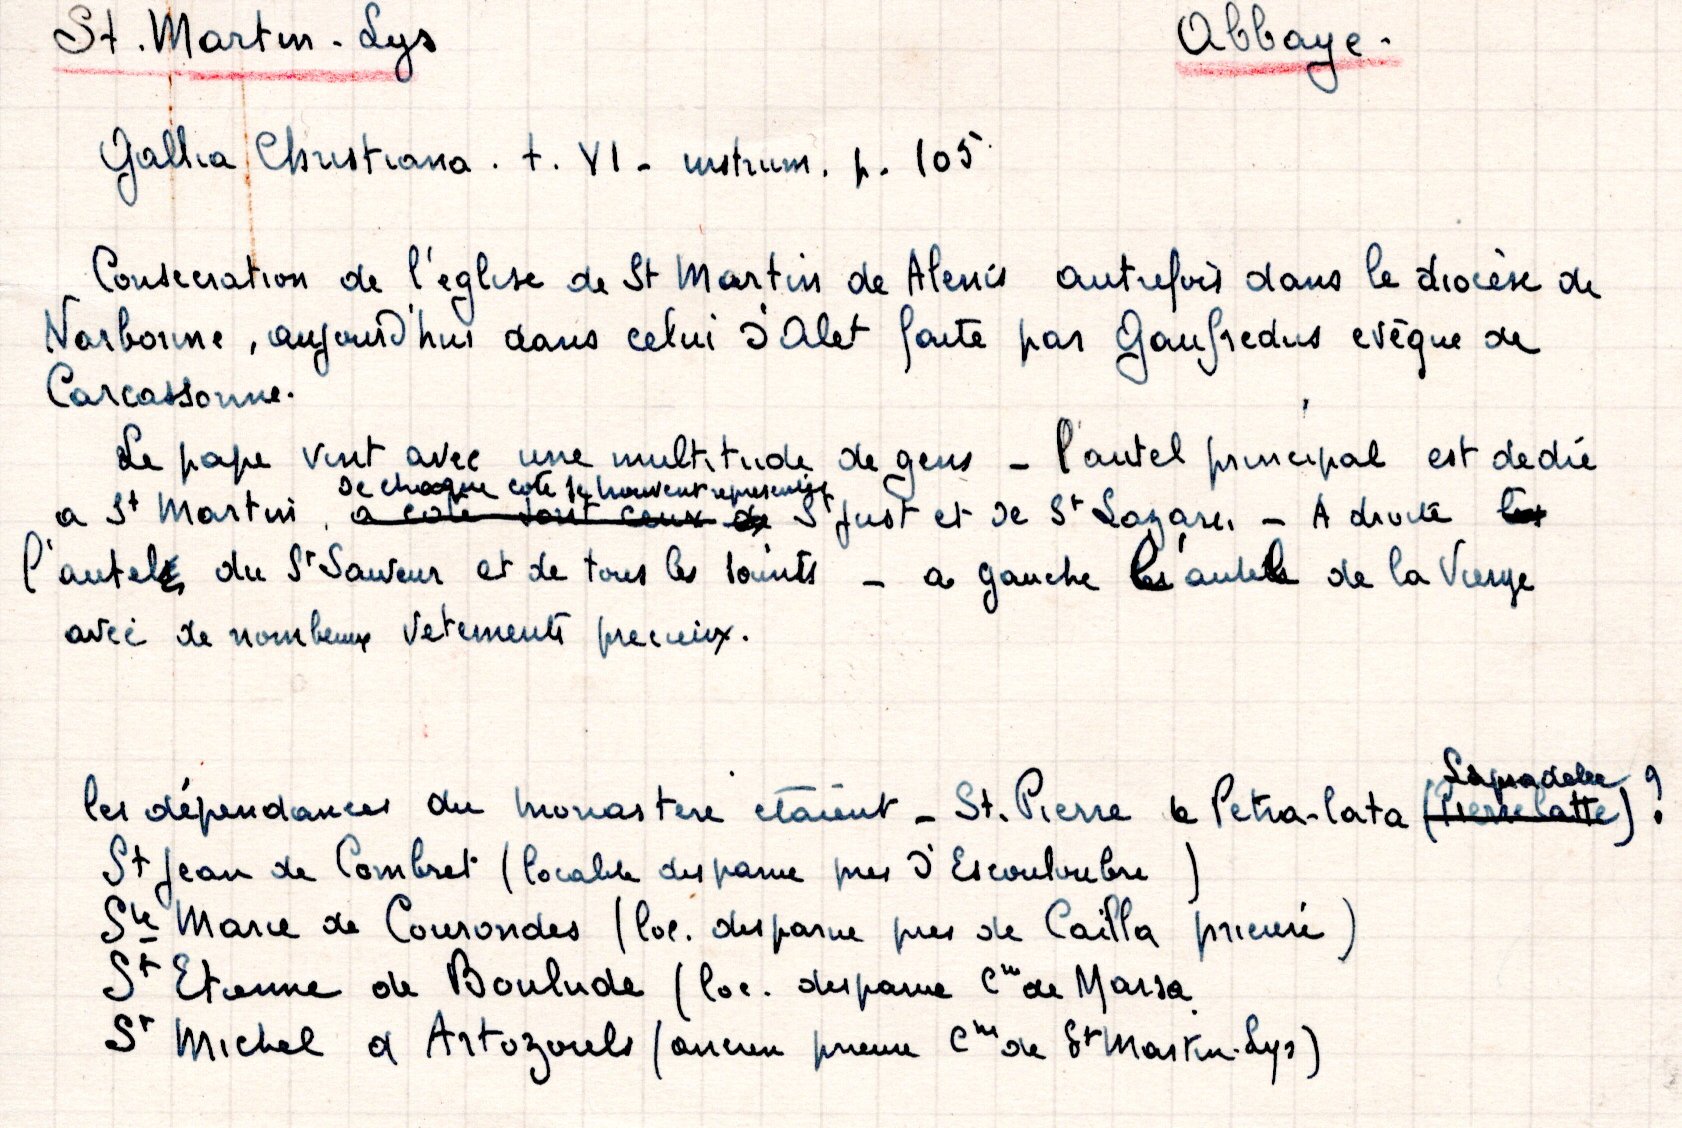 St. Martin-Lys Abbaye.
Gallia Christiana. t. VI - instrum. p. 105
Consecration de l'église de St Martin de Alenis autrefois dans le diocèse de
Narbonne, aujourd'hui dans celui d'Alet faite par Gaufredus evêque de
Carcassonne.
Le pape vint avec une multitude de gens - l'autel principal est dedié
de chaque coté se trouvent representés
a St Martin, a coté sont ceux de St Just et de St Lazare. - A droite les
l'autel du St Sauveur et de tous les saints - a gauche l'autel de la Vierge
avec de nombeux vetements precieux.
Lapradelle
les dépendances du monastere etaient - St. Pierre de Petra-lata (Pierrelatte) ?
St Jean de Combret (localité disparue pres d'Escouloubre)
Ste Marie de Courondes (loc. disparue pres de Cailla prieuré)
St Etienne de Boulude (loc. disparue Cne de Marsa
St Michel d Artozouls (ancien prieure Cne de St Martin-Lys)